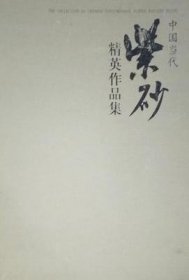 THE COLLECTION OF CHINESE CONTEMPORARY
中国当代
紫砂
精英作品集